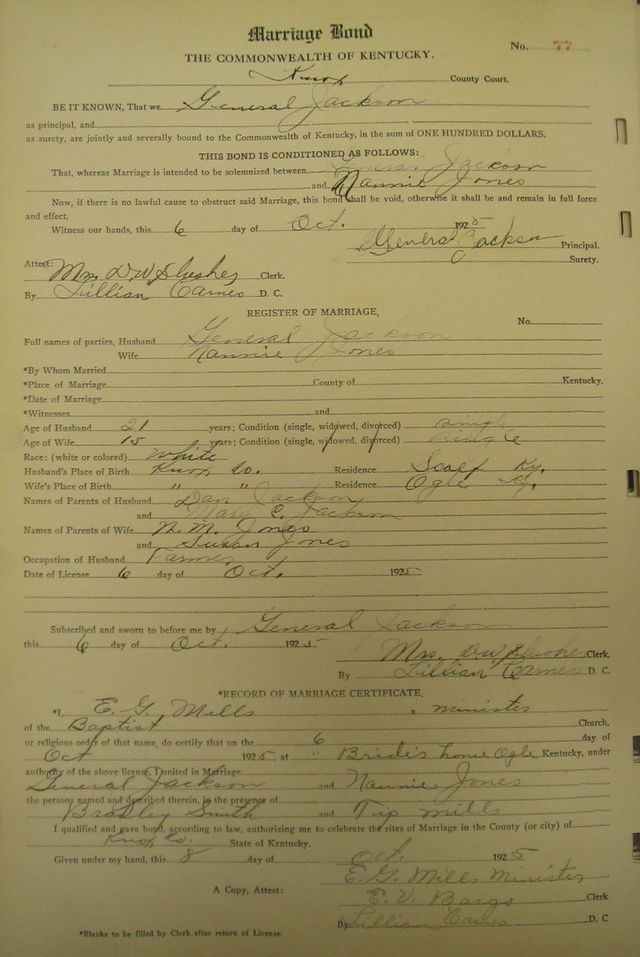 Marriage Bond
No. 77
THE COMMONWEALTH OF KENTUCKY.
Knox County Court.
BE IT KNOWN, That we General Jackson
as principal, and
as surety, are jointly and severally bound to the Commonwealth of Kentucky, in the sum of ONE HUNDRED DOLLARS.
THIS BOND IS CONDITIONED AS FOLLOWS:
That, whereas Marriage is intended to be solemnized between Jackson
and Nannie Jones
Now, if there is no lawful cause to obstruct said Marriage, this bond shall be void, otherwise it shall be and remain in full force
and effect,
Witness our hands, this 6 day of Oct. 1925
General Jackson Principal.
Surety.
Attest: Mrs. D W Slusher Clerk.
By Lillian Carnes D. C.
REGISTER OF MARRIAGE,
No.
Full names of parties, Husband General Jackson
Wife Nannie Jones
*By Whom Married
*Place of Marriage County of Kentucky.
*Date of Marriage
*Witnesses and
Age of Husband 21 years; Condition (single, widowed, divorced) single
Age of Wife 15 years; Condition (single, widowed, divorced) single
Race: (white or colored) white
Husband's Place of Birth Knox Co. Residence Scalf Ky.
Wife's Place of Birth " " Residence Ogle Ky.
Names of Parents of Husband Dan Jackson
and Mary C. Jackson
Names of Parents of Wife N. M. Jones
and Susan Jones
Occupation of Husband Farmer
Date of License 6 day of Oct. 1925
Subscribed and sworn to before me by General Jackson
this 6 day of Oct. 1925
Mrs. D W Slusher Clerk.
By Lillian Carnes D. C.
*RECORD OF MARRIAGE CERTIFICATE.
*I, E. G. Mills, minister
of the Baptist Church,
or religious order of that name, do certify that on the 6 day of
Oct 1925, at " Bride's home Ogle Kentucky, under
authority of the above license, I united in Marriage
General Jackson and Nannie Jones
the persons named and described therein, in the presence of
Bradley Smith and Tip Mills
I qualified and gave bond, according to law, authorizing me to celebrate the rites of Marriage in the County (or city) of
Knox Co. State of Kentucky.
Given under my hand, this 8 day of Oct. 1925
E. G. Mills Minister
A Copy, Attest: E. V. Bargo Clerk
By Lillian Carnes D. C
*Blanks to be filled by Clerk after return of License.